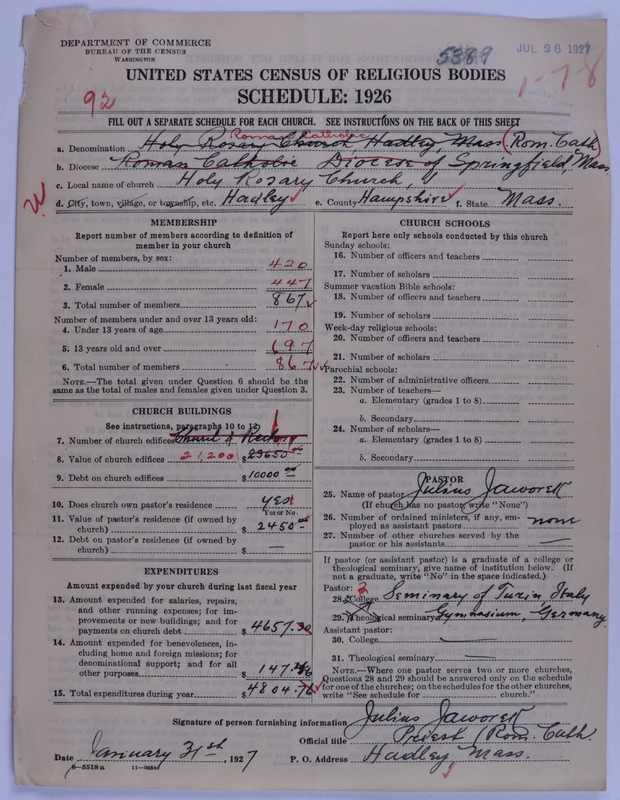 DEPARTMENT OF COMMERCE
BUREAU OF THE CENSUS
WASHINGTON
5389
JUL 26 1927
UNITED STATES CENSUS OF RELIGIOUS BODIES
1-78
SCHEDULE: 1926
92
FILL OUT A SEPARATE SCHEDULE FOR EACH CHURCH. SEE INSTRUCTIONS ON THE BACK OF THIS SHEET
Roman Catholic
a. Denomination Holy Rosary Church, Hadley Mass (Rom. Cath)
b. Diocese Roman Catholic Diocese of Springfield, Mass
c. Local name of church Holy Rosary Church,
d. City, town, village, or township, etc. Hadley e. County Hampshire f. State Mass.
MEMBERSHIP
Report number of members according to definition of
member in your church
Number of members, by sex:
1. Male 420
2. Female 447
3. Total number of members 867
Number of members under and over 13 years old:
4. Under 13 years of age 170
5. 13 years old and over 697
6. Total number of members 867
NOTE.—The total given under Question 6 should be the
same as the total of males and females given under Question 3.
CHURCH BUILDINGS
See instructions, paragraphs 10 to 12
7. Number of church edifices Church & Rectory 1
8. Value of church edifices 21,200 $23650.00
9. Debt on church edifices $10000.00
10. Does church own pastor's residence yes
Yes or No
11. Value of pastor's residence (if owned by
church) $2450.00
12. Debt on pastor's residence (if owned by
church) $ —
EXPENDITURES
Amount expended by your church during last fiscal year
13. Amount expended for salaries, repairs,
and other running expenses; for im-
provements or new buildings; and for
payments on church debt $4657.30
14. Amount expended for benevolences, in-
cluding home and foreign missions; for
denominational support; and for all
other purposes $147.46
15. Total expenditures during year $4804.76
CHURCH SCHOOLS
Report here only schools conducted by this church
Sunday schools:
16. Number of officers and teachers
17. Number of scholars
Summer vacation Bible schools:
18. Number of officers and teachers
19. Number of scholars
Week-day religious schools:
20. Number of officers and teachers
21. Number of scholars
Parochial schools:
22. Number of administrative officers
23. Number of teachers—
a. Elementary (grades 1 to 8)
b. Secondary
24. Number of scholars—
a. Elementary (grades 1 to 8)
b. Secondary
PASTOR
25. Name of pastor Julius Jaworek
(If church has no pastor, write "None")
26. Number of ordained ministers, if any, em-
ployed as assistant pastors none
27. Number of other churches served by the
pastor or his assistants —
If pastor (or assistant pastor) is a graduate of a college or
theological seminary, give name of institution below. (If
not a graduate, write "No" in the space indicated.)
Pastor: 2
28. College Seminary of Turin, Italy
29. Theological seminary Gymnasium, Germany.
Assistant pastor:
30. College
31. Theological seminary
NOTE.—Where one pastor serves two or more churches,
Questions 28 and 29 should be answered only on the schedule
for one of the churches; on the schedules for the other churches,
write "See schedule for church."
Signature of person furnishing information Julius Jaworek
Official title Priest / Rom. Cath.
Date January 31st, 1927 P. O. Address Hadley, Mass.
8—5518a 11—9864